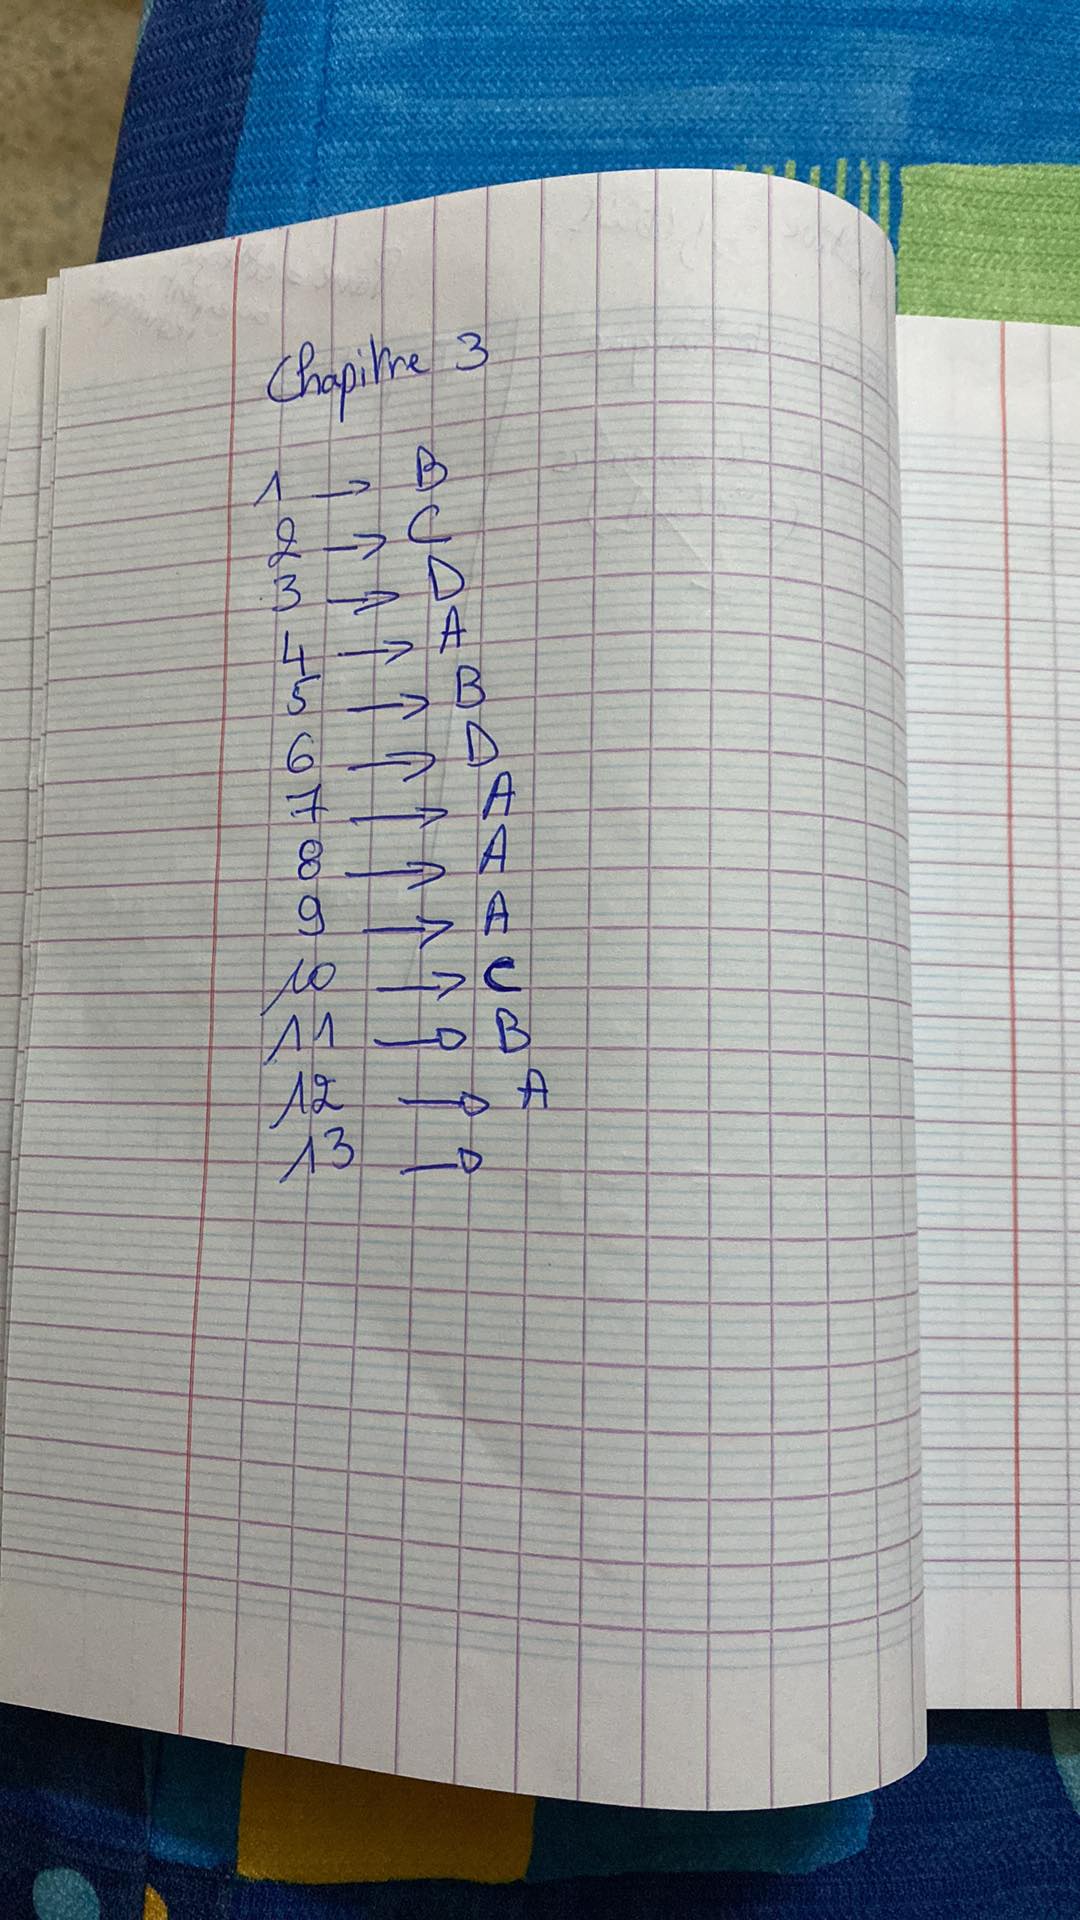 Chapitre 3
1 → B
2 → C
3 → D
4 → A
5 → B
6 → D
7 → A
8 → A
9 → A
10 → C
11 → B
12 → A
13 →